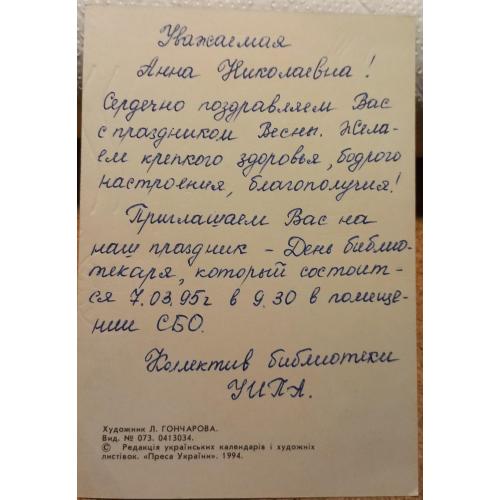 Уважаемая
Анна Николаевна!
Сердечно поздравляем Вас
с праздником Весны. Жела-
ем крепкого здоровья, бодрого
настроения, благополучия!
Приглашаем Вас на
наш праздник – День библио-
текаря, который состоит-
ся 7.03.95г в 9.30 в помеще-
нии СБО.
Коллектив библиотеки
УИПА.
Художник Л. ГОНЧАРОВА.
Вид. № 073. 0413034.
© Редакція українських календарів і художніх
листівок. «Преса України». 1994.